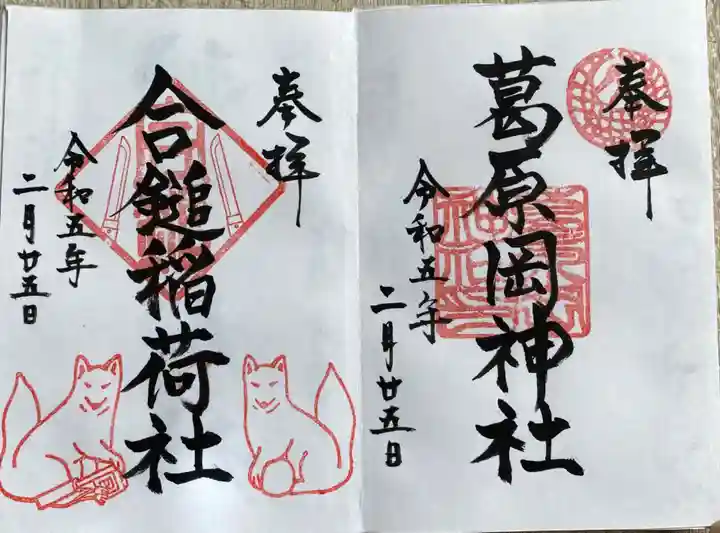 奉拝
葛原岡神社
令和五年
二月廿五日
奉拝
合鎚稲荷社
令和五年
二月廿五日